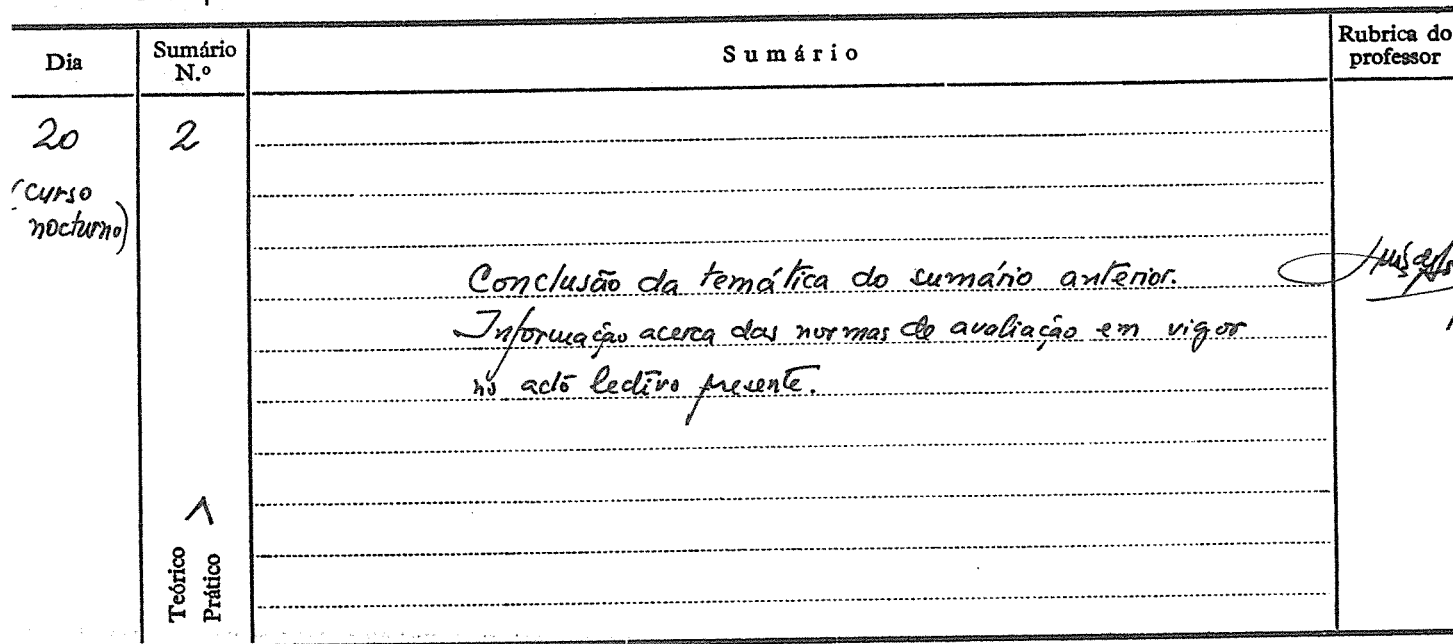 Dia
Sumário
N.º
Sumário
Rubrica do
professor
20
2
(curso
nocturno)
Conclusão da temática do sumário anterior.
Informação acerca das normas de avaliação em vigor
no acto lectivo presente.
Teórico
Prático